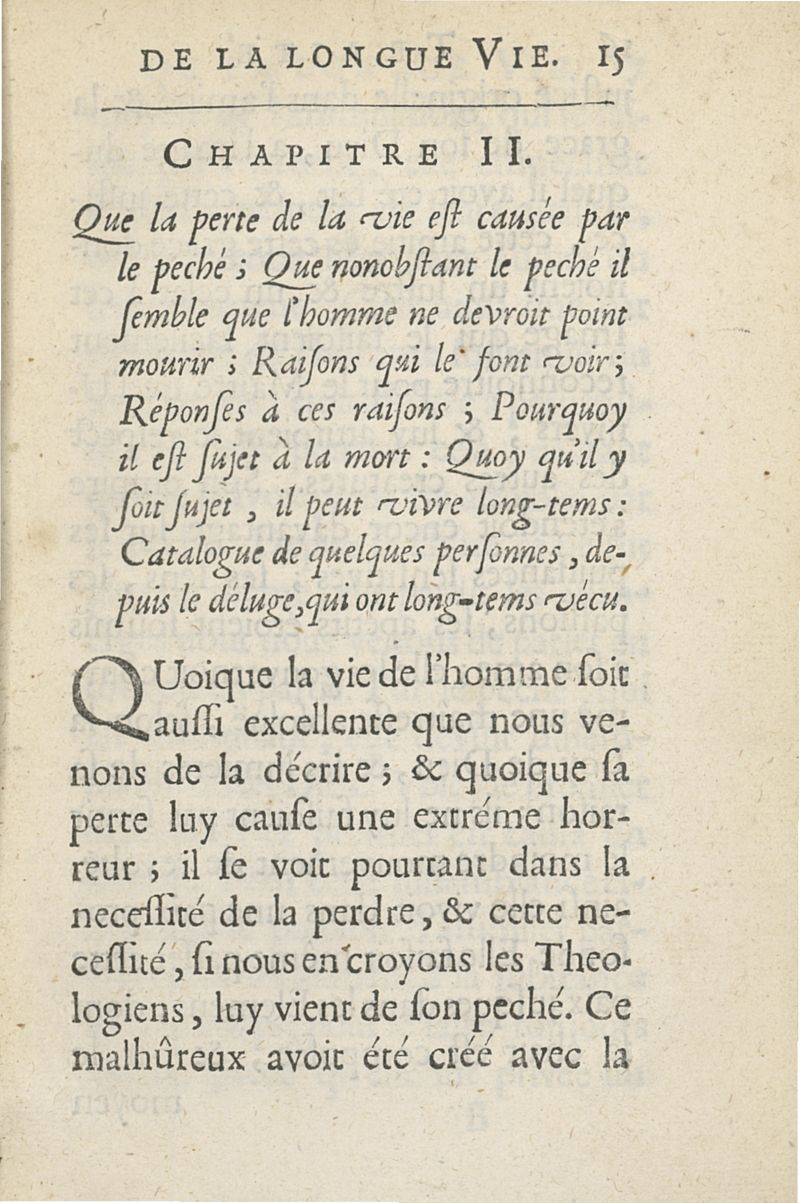 DE LA LONGUE VIE. 15
CHAPITRE II.
Que la perte de la vie eſt causée par
le peché ; Que nonobſtant le peché il
ſemble que l'homme ne devroit point
mourir ; Raiſons qui le font voir ;
Réponſes à ces raiſons ; Pourquoy
il eſt ſujet à la mort : Quoy qu'il y
ſoit ſujet , il peut vivre long-tems :
Catalogue de quelques perſonnes , de-
puis le déluge, qui ont long-tems vécu.
QUoique la vie de l'homme ſoit
auſſi excellente que nous ve-
nons de la décrire ; & quoique ſa
perte luy cauſe une extréme hor-
reur ; il ſe voit pourtant dans la
neceſſité de la perdre, & cette ne-
ceſſité, ſi nous en croyons les Theo-
logiens, luy vient de ſon peché. Ce
malhûreux avoit été créé avec la